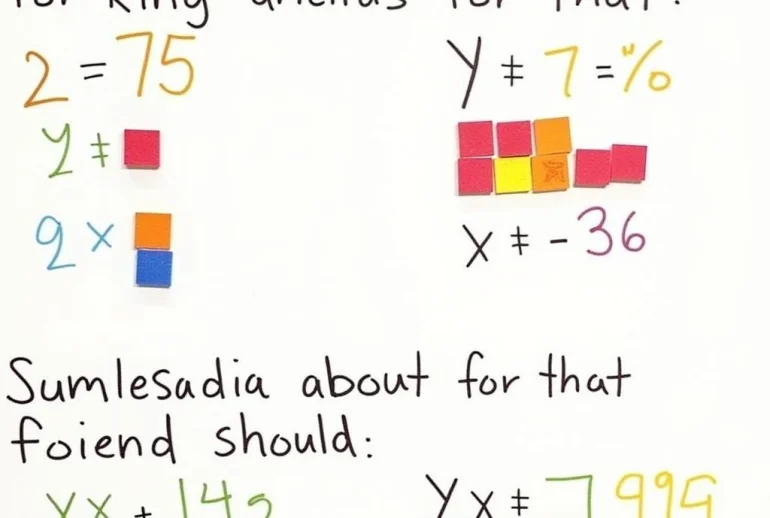 2 = 75
y ‡ 7 = "%
y ‡
2 x
x ‡ - 36
Sumlesadia about for that
foiend should:
Yx ‡ 7999